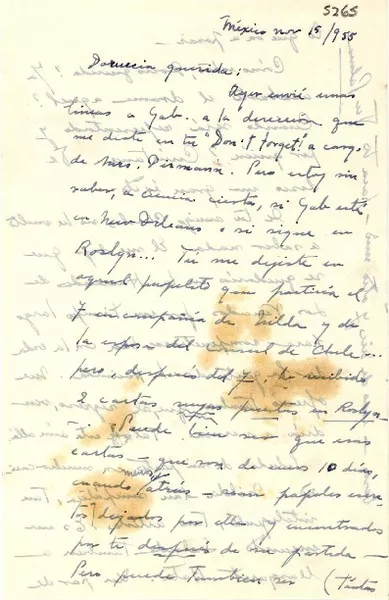 5265
México nov 15/955
Doruccia querida:
Ayer envié unas
líneas a Gab. a la dirección que
me diste en tu "Don't forget"! a cargo
de Mrs. Dirmann. Pero estoy sin
saber, a ciencia cierta, si Gab está
en New Orleans o si sigue en
Roslyn... Tú me dijiste en
aquel papelito que partiría el
7 en compañía de Gilda y de
la esposa del consul de Chile...
pero, después del 7, he recibido
2 cartas suyas puestas en Roslyn
¿Puede bien ser que esas
cartas - que son de unos 10 días,
cuando menos atrás - sean papeles
dejados por ella y encontrados
por ti después de su partida -
Pero puede también ser (tantas